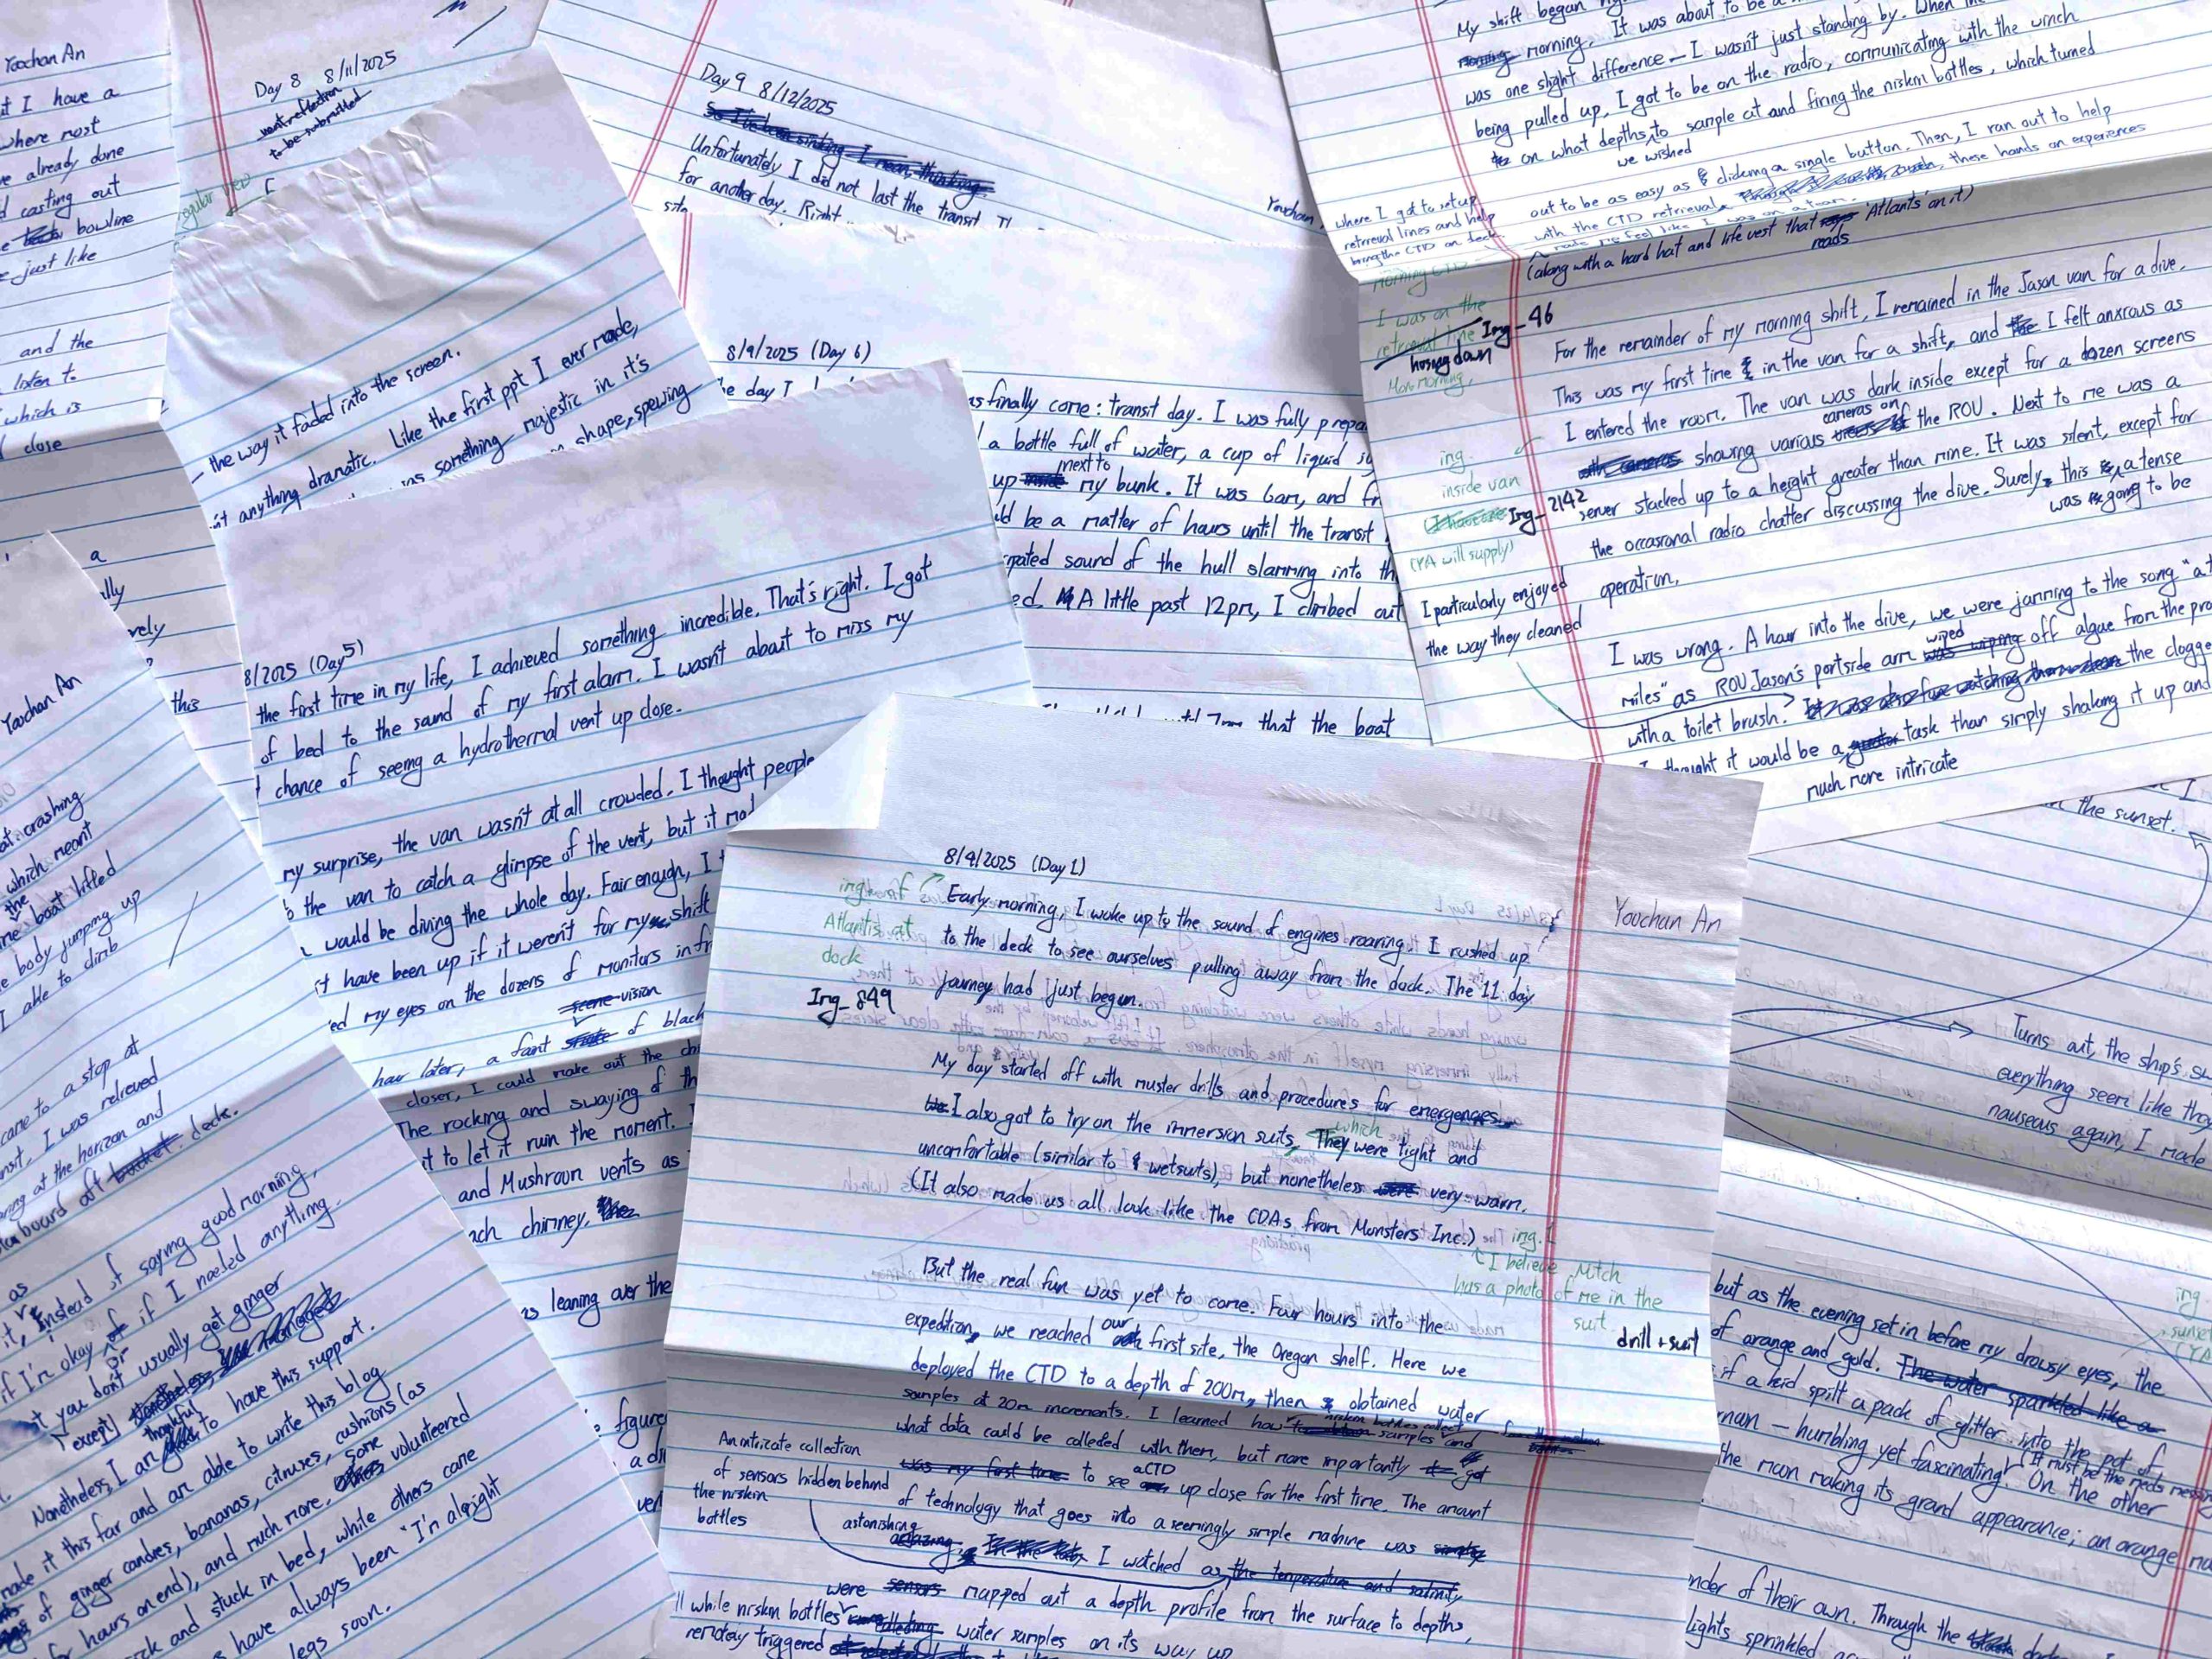 Yoochan An
t I have a
where most
e already done
d casting out
bowline
e just like
and the
listen to
which is
close
a
lly
rely
this
Day 8 8/11/2025
vent reflection
to be submitted
the way it faded into the screen.
n't anything dramatic. Like the first ppt I ever made,
as something majestic in it's
shape, spewing
Day 9 8/12/2025
So I've been sinking I mean, thinking
Unfortunately I did not last the transit
for another day. Right
site
Yoochan
8/9/2025 (Day 6)
he day I
as finally come: transit day. I was fully prepa
a bottle full of water, a cup of liquid
up next to my bunk. It was 6am, and
ld be a matter of hours until the transit
pated sound of the hull slamming into th
ed. A little past 12pm, I climbed out
that the boat
8/2025 (Day 5)
the first time in my life, I achieved something incredible. That's right. I got
of bed to the sound of my first alarm. I wasn't about to miss my
chance of seeing a hydrothermal vent up close.
my surprise, the van wasn't at all crowded. I thought people
the van to catch a glimpse of the vent, but it
would be diving the whole day. Fair enough, I
't have been up if it weren't for my shift
ed my eyes on the dozens of monitors in fr
scene vision
hour later, a faint of black
closer, I could make out the ch
The rocking and swaying of th
it to let it ruin the moment.
and Mushroom vents as
ach chimney.
as leaning over the
figure
My shift began
morning. It was about to be a
was one slight difference – I wasn't just standing by. When
being pulled up, I got to be on the radio, communicating with the winch
on what depths to sample at and firing the niskin bottles, which turned
we wished
out to be as easy as clicking a single button. Then, I ran out to help
with the CTD retrieval, these hands on experiences
made me feel like I was on a team.
where I got to setup
retrieval lines and help
bring the CTD on deck.
(along with a hard hat and life vest that reads 'Atlantis on it)
morning CTD
I was on the
retrieval line
Img_46
hosing down
Mon morning,
For the remainder of my morning shift, I remained in the Jason van for a dive.
This was my first time in the van for a shift, and I felt anxious as
I entered the room. The van was dark inside except for a dozen screens
cameras on
with cameras showing various of the ROV. Next to me was a
server stacked up to a height greater than mine. It was silent, except for
the occasional radio chatter discussing the dive. Surely, this was going to be a tense
operation.
img.
inside van
Img_2142
(YA will supply)
I particularly enjoyed
the way they cleaned
I was wrong. A hour into the dive, we were jamming to the song "a t
miles" as ROV Jason's portside arm wiped off algae from the pro
with a toilet brush. the clogge
thought it would be a task than simply shaking it up and
much more intricate
the sunset.
8/4/2025 (Day 1)
Yoochan An
img of
Atlantis at
dock
Img_849
Early morning, I woke up to the sound of engines roaring. I rushed up
to the deck to see ourselves pulling away from the dock. The 11 day
journey had just begun.
My day started off with muster drills and procedures for emergences.
I also got to try on the immersion suits, which They were tight and
uncomfortable (similar to wetsuits), but nonetheless were very warm.
(It also made us all look like the CDAs from Monsters Inc.)
img.
I believe Mitch
has a photo of me in the
suit.
drill + suit
But the real fun was yet to come. Four hours into the
expedition, we reached our first site, the Oregon shelf. Here we
deployed the CTD to a depth of 200m, then obtained water
samples at 20m increments. I learned how niskin bottles collect samples and
what data could be collected with them, but more importantly got
was my first time to see a CTD up close for the first time. The amount
of technology that goes into a seemingly simple machine was
astonishing
amazing. In the lab, I watched as the temperature and salinity
An intricate collection
of sensors hidden behind
the niskin
bottles
were sensors mapped out a depth profile from the surface to depths,
ll while niskin bottles collecting water samples on its way up
remotely triggered
Yoochan An
at crashing
which meant
the boat lifted
e body jumping up
I able to climb
came to a stop at
ansit, I was relieved
aring at the horizon and
board aft bucket deck.
as
it, instead of saying good morning,
if I'm okay or if I needed anything.
t you don't usually get ginger
except
Nonetheless, I am thankful to have this support.
made it this far and am able to write this blog
of ginger candies, bananas, citruses, cushions (as
for hours on end), and much more. some others volunteered
ck and stuck in bed, while others came
have always been "I'm alright
legs soon.
Turns out, the ship's
everything seem like the
nauseous again, I made
but as the evening set in before my drowsy eyes, the
of orange and gold. The water sparkled like a
if a kid spilt a pack of glitter into the pot of
man – humbling yet fascinating! On the other
It must be the meds
the moon making its grand appearance; an orange
nder of their own. Through the
lights sprinkled
img
sunset
(YA